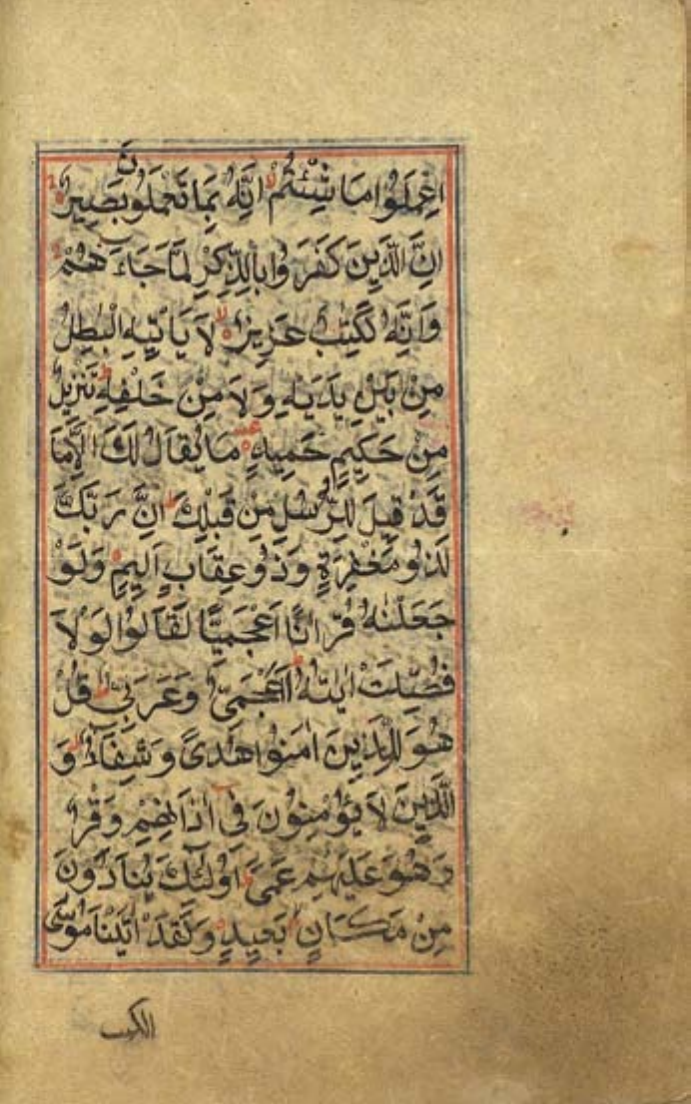 اِعْمَلُوْا مَا شِئْتُمْ اِنَّهٗ بِمَا تَعْمَلُوْنَ بَصِيْرٌ
اِنَّ الَّذِيْنَ كَفَرُوْا بِالذِّكْرِ لَمَّا جَاۤءَهُمْ
وَاِنَّهٗ لَكِتٰبٌ عَزِيْزٌ لَا يَاْتِيْهِ الْبٰطِلُ
مِنْ بَيْنِ يَدَيْهِ وَلَا مِنْ خَلْفِهٖ تَنْزِيْلٌ
مِنْ حَكِيْمٍ حَمِيْدٍ مَا يُقَالُ لَكَ اِلَّا مَا
قَدْ قِيْلَ لِلرُّسُلِ مِنْ قَبْلِكَ اِنَّ رَبَّكَ
لَذُوْ مَغْفِرَةٍ وَذُوْ عِقَابٍ اَلِيْمٍ وَلَوْ
جَعَلْنٰهُ قُرْاٰنًا اَعْجَمِيًّا لَقَالُوْا لَوْلَا
فُصِّلَتْ اٰيٰتُهٗ ءَاَعْجَمِىٌّ وَعَرَبِىٌّ قُلْ
هُوَ لِلَّذِيْنَ اٰمَنُوْا هُدًى وَشِفَاۤءٌ وَ
الَّذِيْنَ لَا يُؤْمِنُوْنَ فِىْ اٰذَانِهِمْ وَقْرٌ
وَهُوَ عَلَيْهِمْ عَمًى اُولٰۤئِكَ يُنَادَوْنَ
مِنْ مَكَانٍ بَعِيْدٍ وَلَقَدْ اٰتَيْنَا مُوْسَى
الكتب